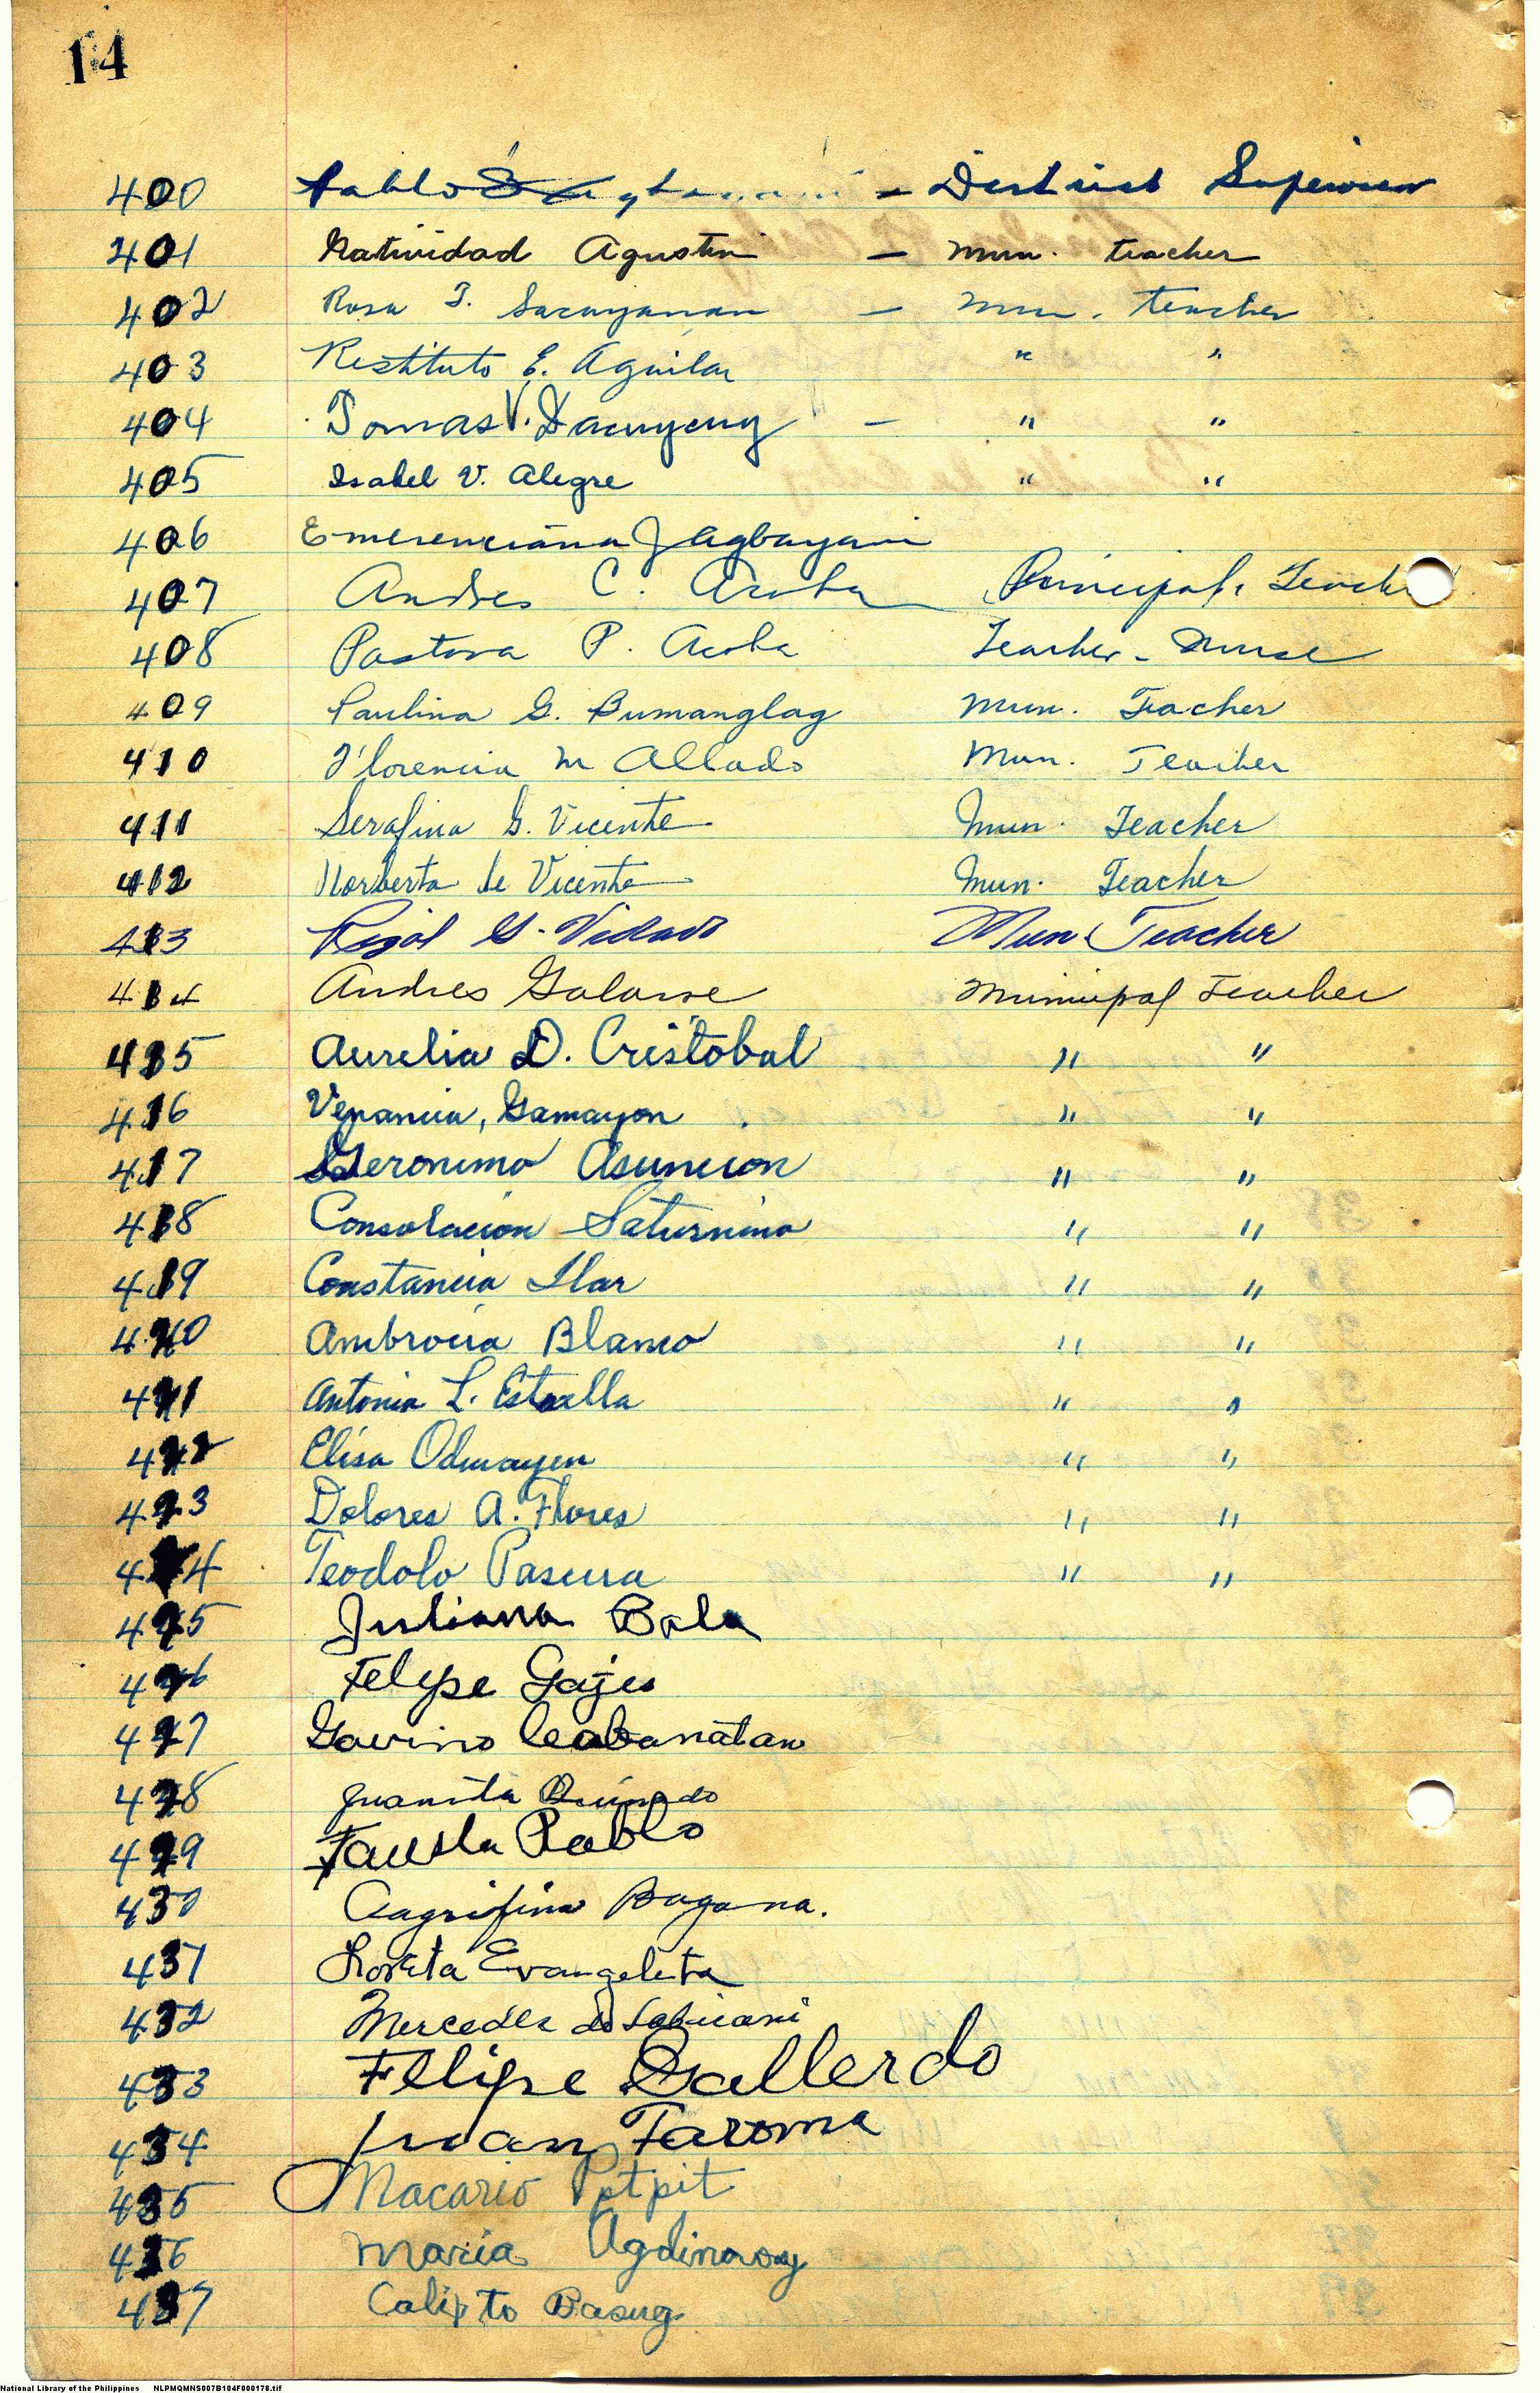 14
400 Pablo - District Supervisor
401 Natividad Agustin - Mun. teacher
402 Rosa T. Sacayanan - Mun. teacher
403 Restituto E. Aguilar " "
404 Tomas V. Dacuycuy - " "
405 Isabel V. Alegre " "
406 Emerenciana J Agbayani
407 Andres C. Acoba Principal Teach
408 Pastora P. Acoba Teacher-Nurse
409 Paulina G. Bumanglag Mun. Teacher
410 Florencia M Allado Mun. Teacher
411 Serafina G. Vicente Mun. Teacher
412 Norberta de Vicente Mun. Teacher
413 Rizal G. Mun Teacher
414 Andres Galarse Municipal Teacher
415 Aurelia D. Cristobal " "
416 Venancia, Gamayon " "
417 Geronimo Asuncion " "
418 Consolacion Saturnino " "
419 Constancia Ilar " "
420 Ambrocia Blanco " "
421 Antonia L. Estrella " "
422 Elisa Odmayen " "
423 Dolores A. Flores " "
424 Teodolo Pascua " "
425 Juliana Bala
426 Felipe Gajes
427 Gavino Cabanatan
428 Juanita
429 Fausta Pablo
430 Cagrifina Bagana.
431 Loreta Evangelista
432 Mercedes
433 Felipe Gallerdo
434 Juan Taroma
435 Macario Pitpit
436 Maria Agdinaoay
437 Calixto Basug
National Library of the Philippines NLPMQMNS007B104F000178.tif